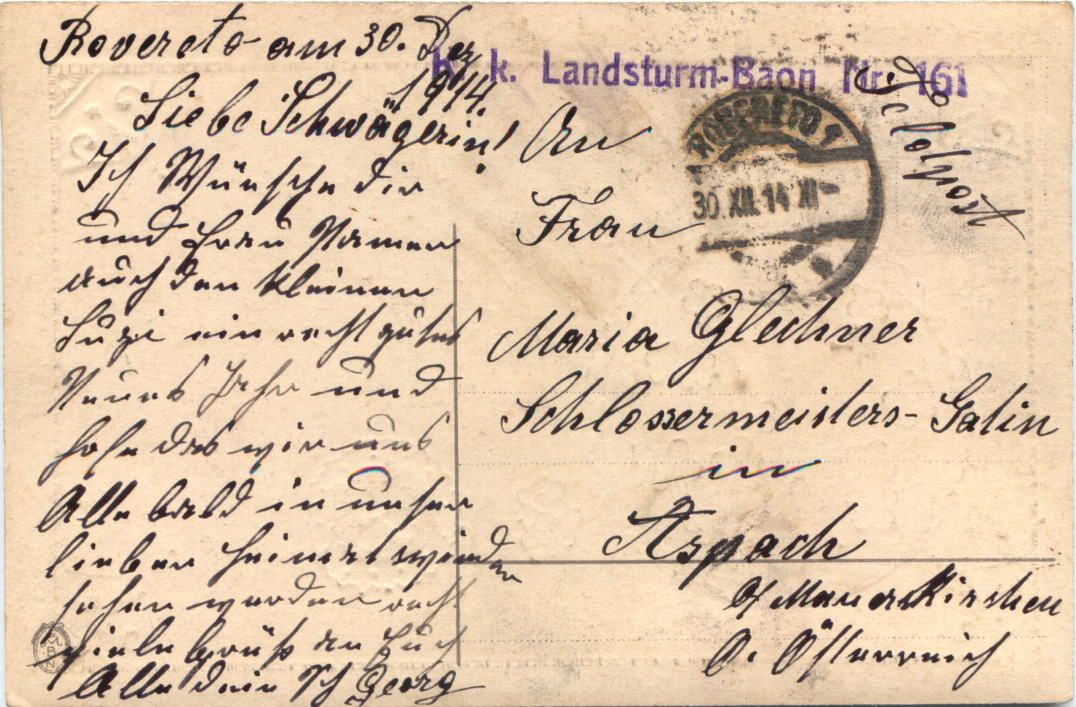 Rovereto am 30. Dez
1914.
Liebe Schwägerin!
Ich Wünsche dir
und
auch den kleinen
ein recht gutes
Neues Jahr und
hofe das wir uns
Alle bald in unser
lieben Heimat wieder
sehen werden recht
viele Grüße an Euch
Alle dein Georg
K. k. Landsturm-Baon Nr. 161
Feldpost
ROVERETO 1
30.XII.14 XI
An
Frau
Maria Glechner
Schlossermeisters-Gatin
in
Aspach
b/ Mauerkirchen
O. Österreich